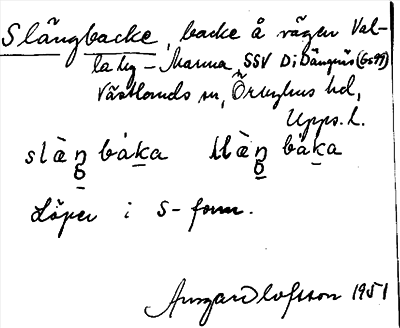 Slängbacke, backe å vägen Val-
la hg – Marma SSV Dängnäs (Gs99)
Västlands sn, Örbyhus hd,
Upps. l.
slàŋ bàka slàŋ bàka
Löper i S-form.
Ansgar Olofsson 1951